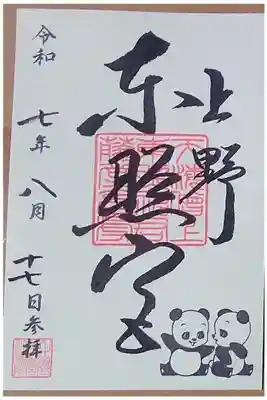 上野
東照宮
令和
七年
八月
十七日参拝